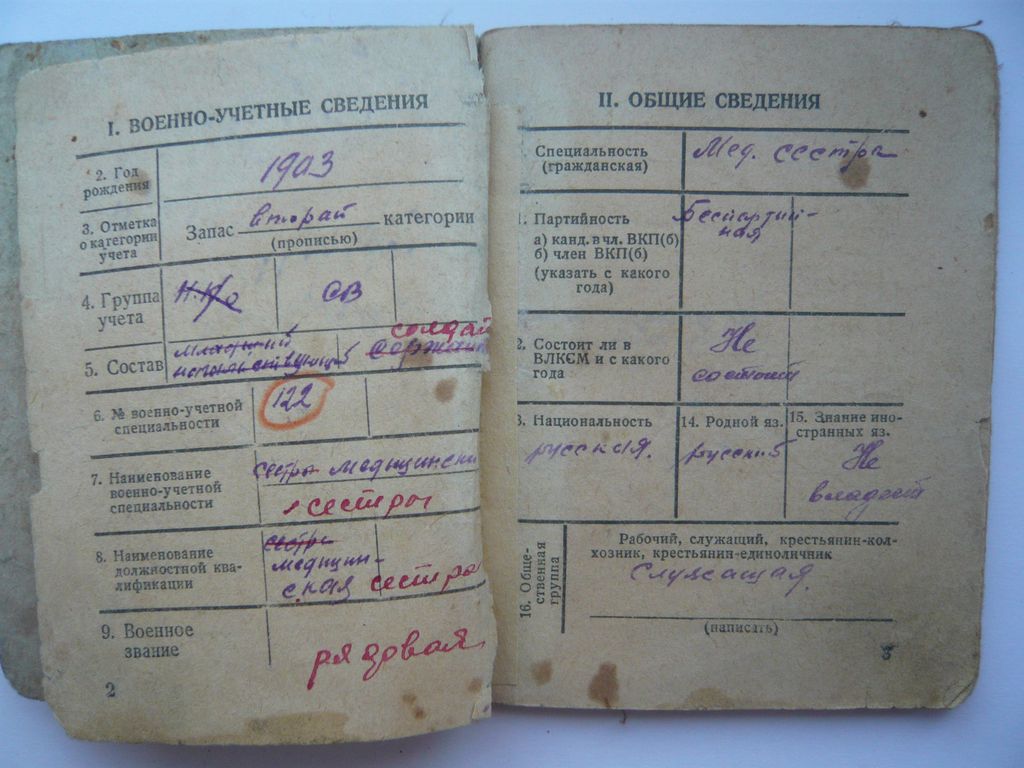 I. ВОЕННО-УЧЕТНЫЕ СВЕДЕНИЯ
2. Год
рождения
1903
3. Отметка
о категории
учета
Запас вторай категории
(прописью)
4. Группа
учета
СВ
5. Состав
младший
солдат
6. № военно-учетной
специальности
122
7. Наименование
военно-учетной
специальности
сестры медицински
сестры
8. Наименование
должностной ква-
лификации
сестра
медицин-
ская сестра
9. Военное
звание
рядовая
2
II. ОБЩИЕ СВЕДЕНИЯ
Специальность
(гражданская)
Мед. сестры
1. Партийность
а) канд. в чл. ВКП(б)
б) член ВКП(б)
(указать с какого
года)
Беспартий-
ная
2. Состоит ли в
ВЛКСМ и с какого
года
Не
состоит
3. Национальность
русская.
14. Родной яз.
русский
15. Знание ино-
странных яз.
Не
владеет
16. Обще-
ственная
группа
Рабочий, служащий, крестьянин-кол-
хозник, крестьянин-единоличник
Служащая.
(написать)
3